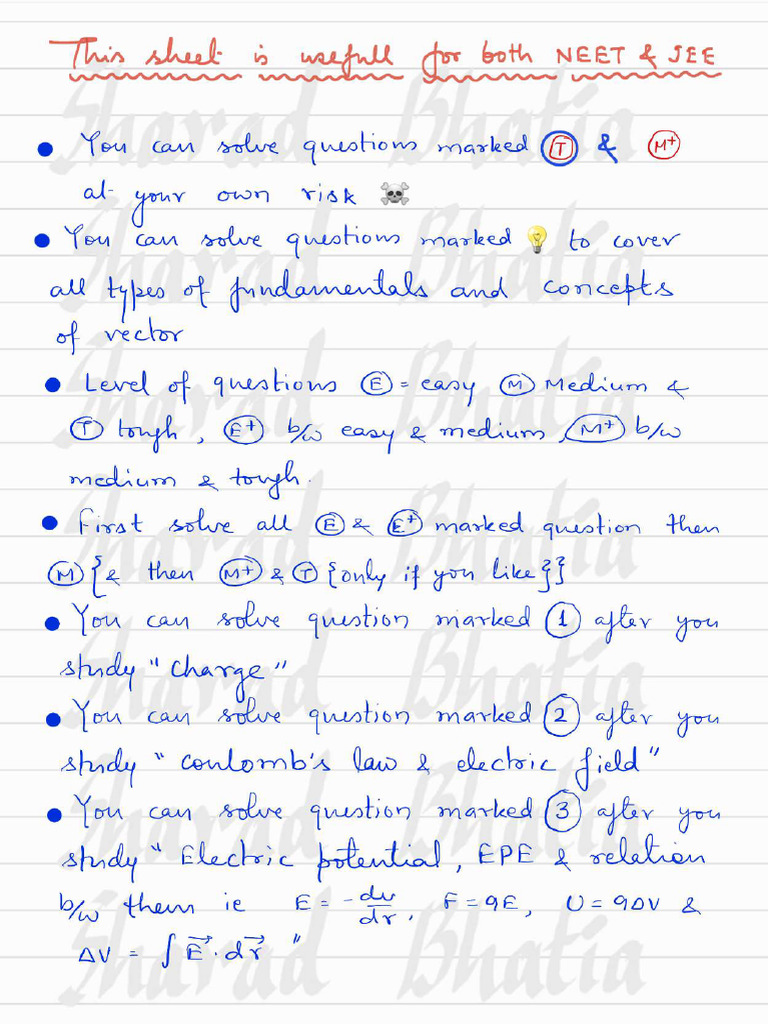 This sheet is usefull for both NEET & JEE
• You can solve questions marked (T) & (M+)
at your own risk ☠
• You can solve questions marked 💡 to cover
all types of fundamentals and concepts
of vector
• Level of questions (E) = easy (M) Medium &
(T) tough, (E+) b/w easy & medium, (M+) b/w
medium & tough.
• First solve all (E) & (E+) marked question then
(M) {& then (M+) & (T) {only if you like}}
• You can solve question marked (1) after you
study "Charge"
• You can solve question marked (2) after you
study "coulomb's law & electric field"
• You can solve question marked (3) after you
study "Electric potential, EPE & relation
b/w them ie E = -dv/dr, F = qE, U = qΔV &
ΔV = ∫E⃗·dr⃗"
Sharad Bhatia
Sharad Bhatia
Sharad Bhatia
Sharad Bhatia
Sharad Bhatia
Sharad Bhatia
Sharad Bhatia